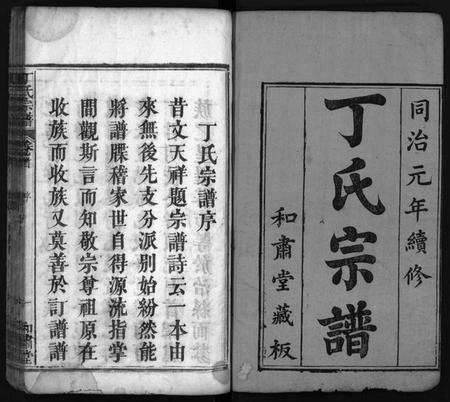 同治元年續修
丁氏宗譜
和肅堂藏板
丁氏宗譜序
昔文天祥題宗譜詩云一本由
來無後先支分派別始紛然能
將譜牒稽家世自得源流指掌
間觀斯言而知敬宗尊祖原在
收族而收族又莫善於訂譜譜
丁氏宗譜
序
一
和肅堂